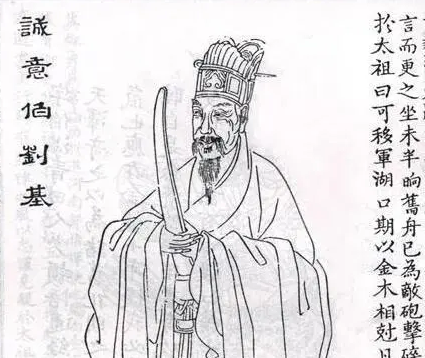 言而更之坐未半晌舊舟已為敵砲擊
扵太祖曰可移軍湖口期以金木相尅
誠意伯劉基